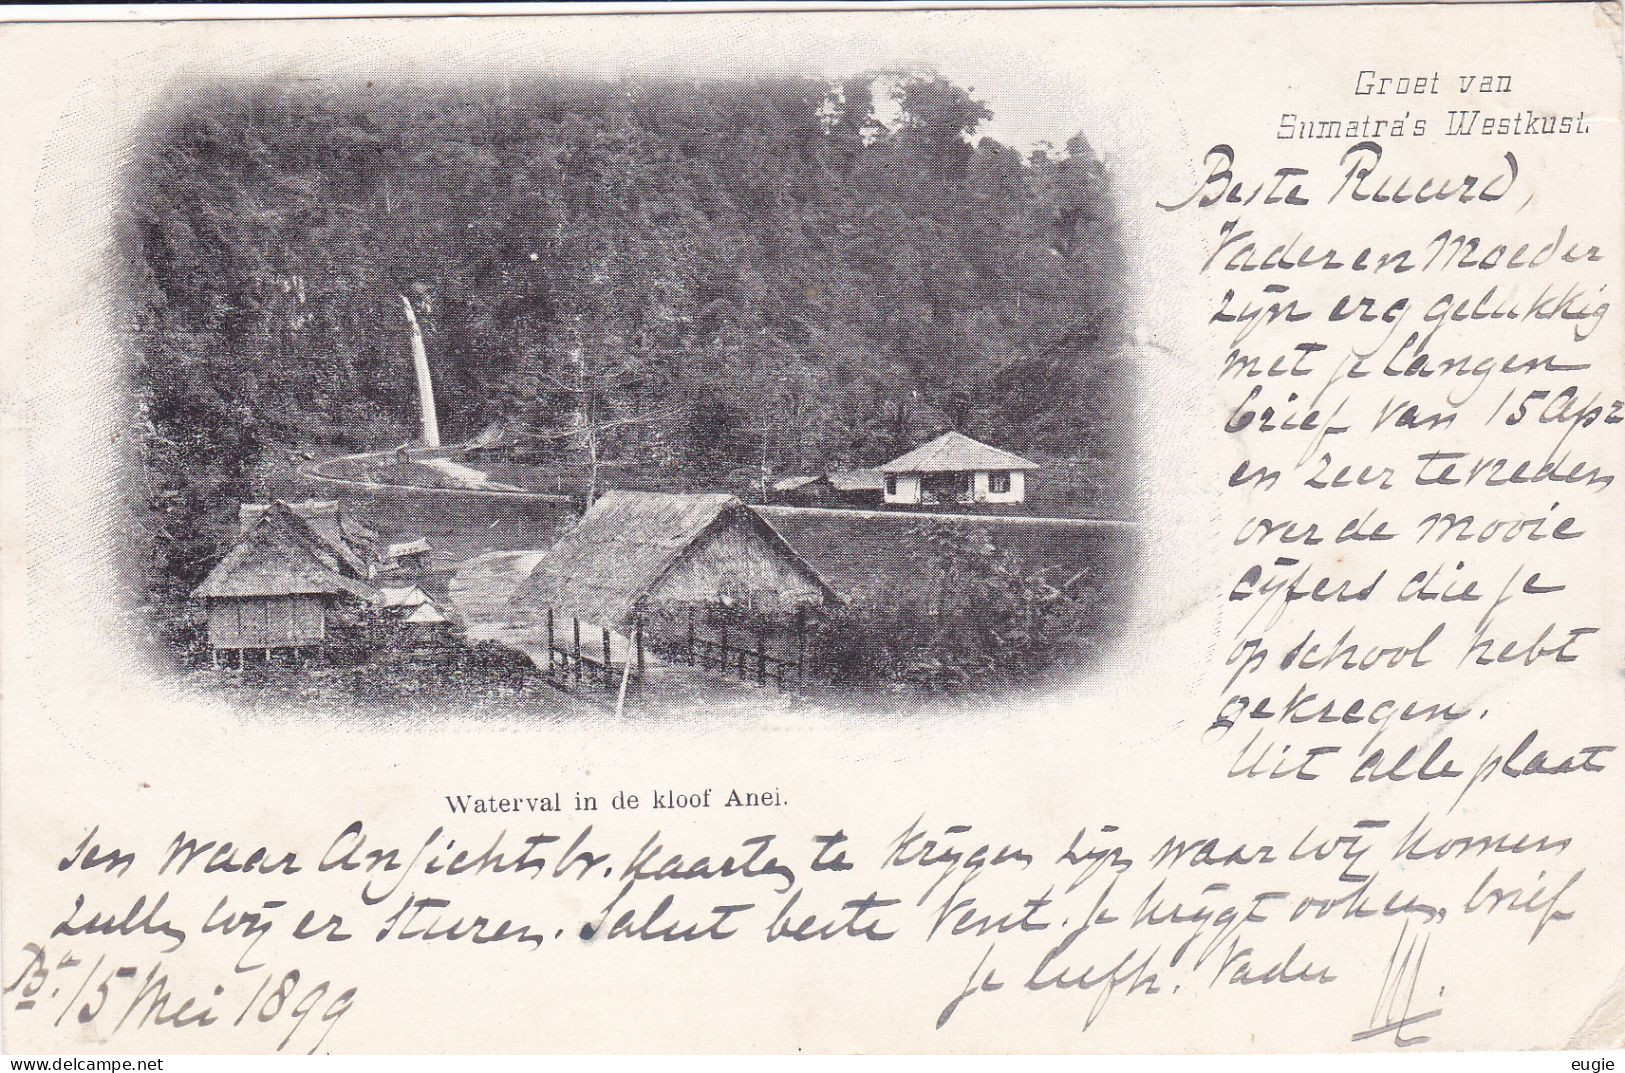 Groet van
Sumatra's Westkust.
Beste Ruurd,
Vader en Moeder
zijn erg gelukkig
met je langen
brief van 15 Apr
en zeer tevreden
over de mooie
cijfers die je
op school hebt
gekregen.
Uit alle plaat
sen waar Ansichtsbr. kaarten te krijgen zijn waar wij komen
zullen wij er sturen. Salut beste Vent. Je krijgt ook een brief
Je liefh. Vader
15 Mei 1899
Waterval in de kloof Anei.
eugie
delcampe.net